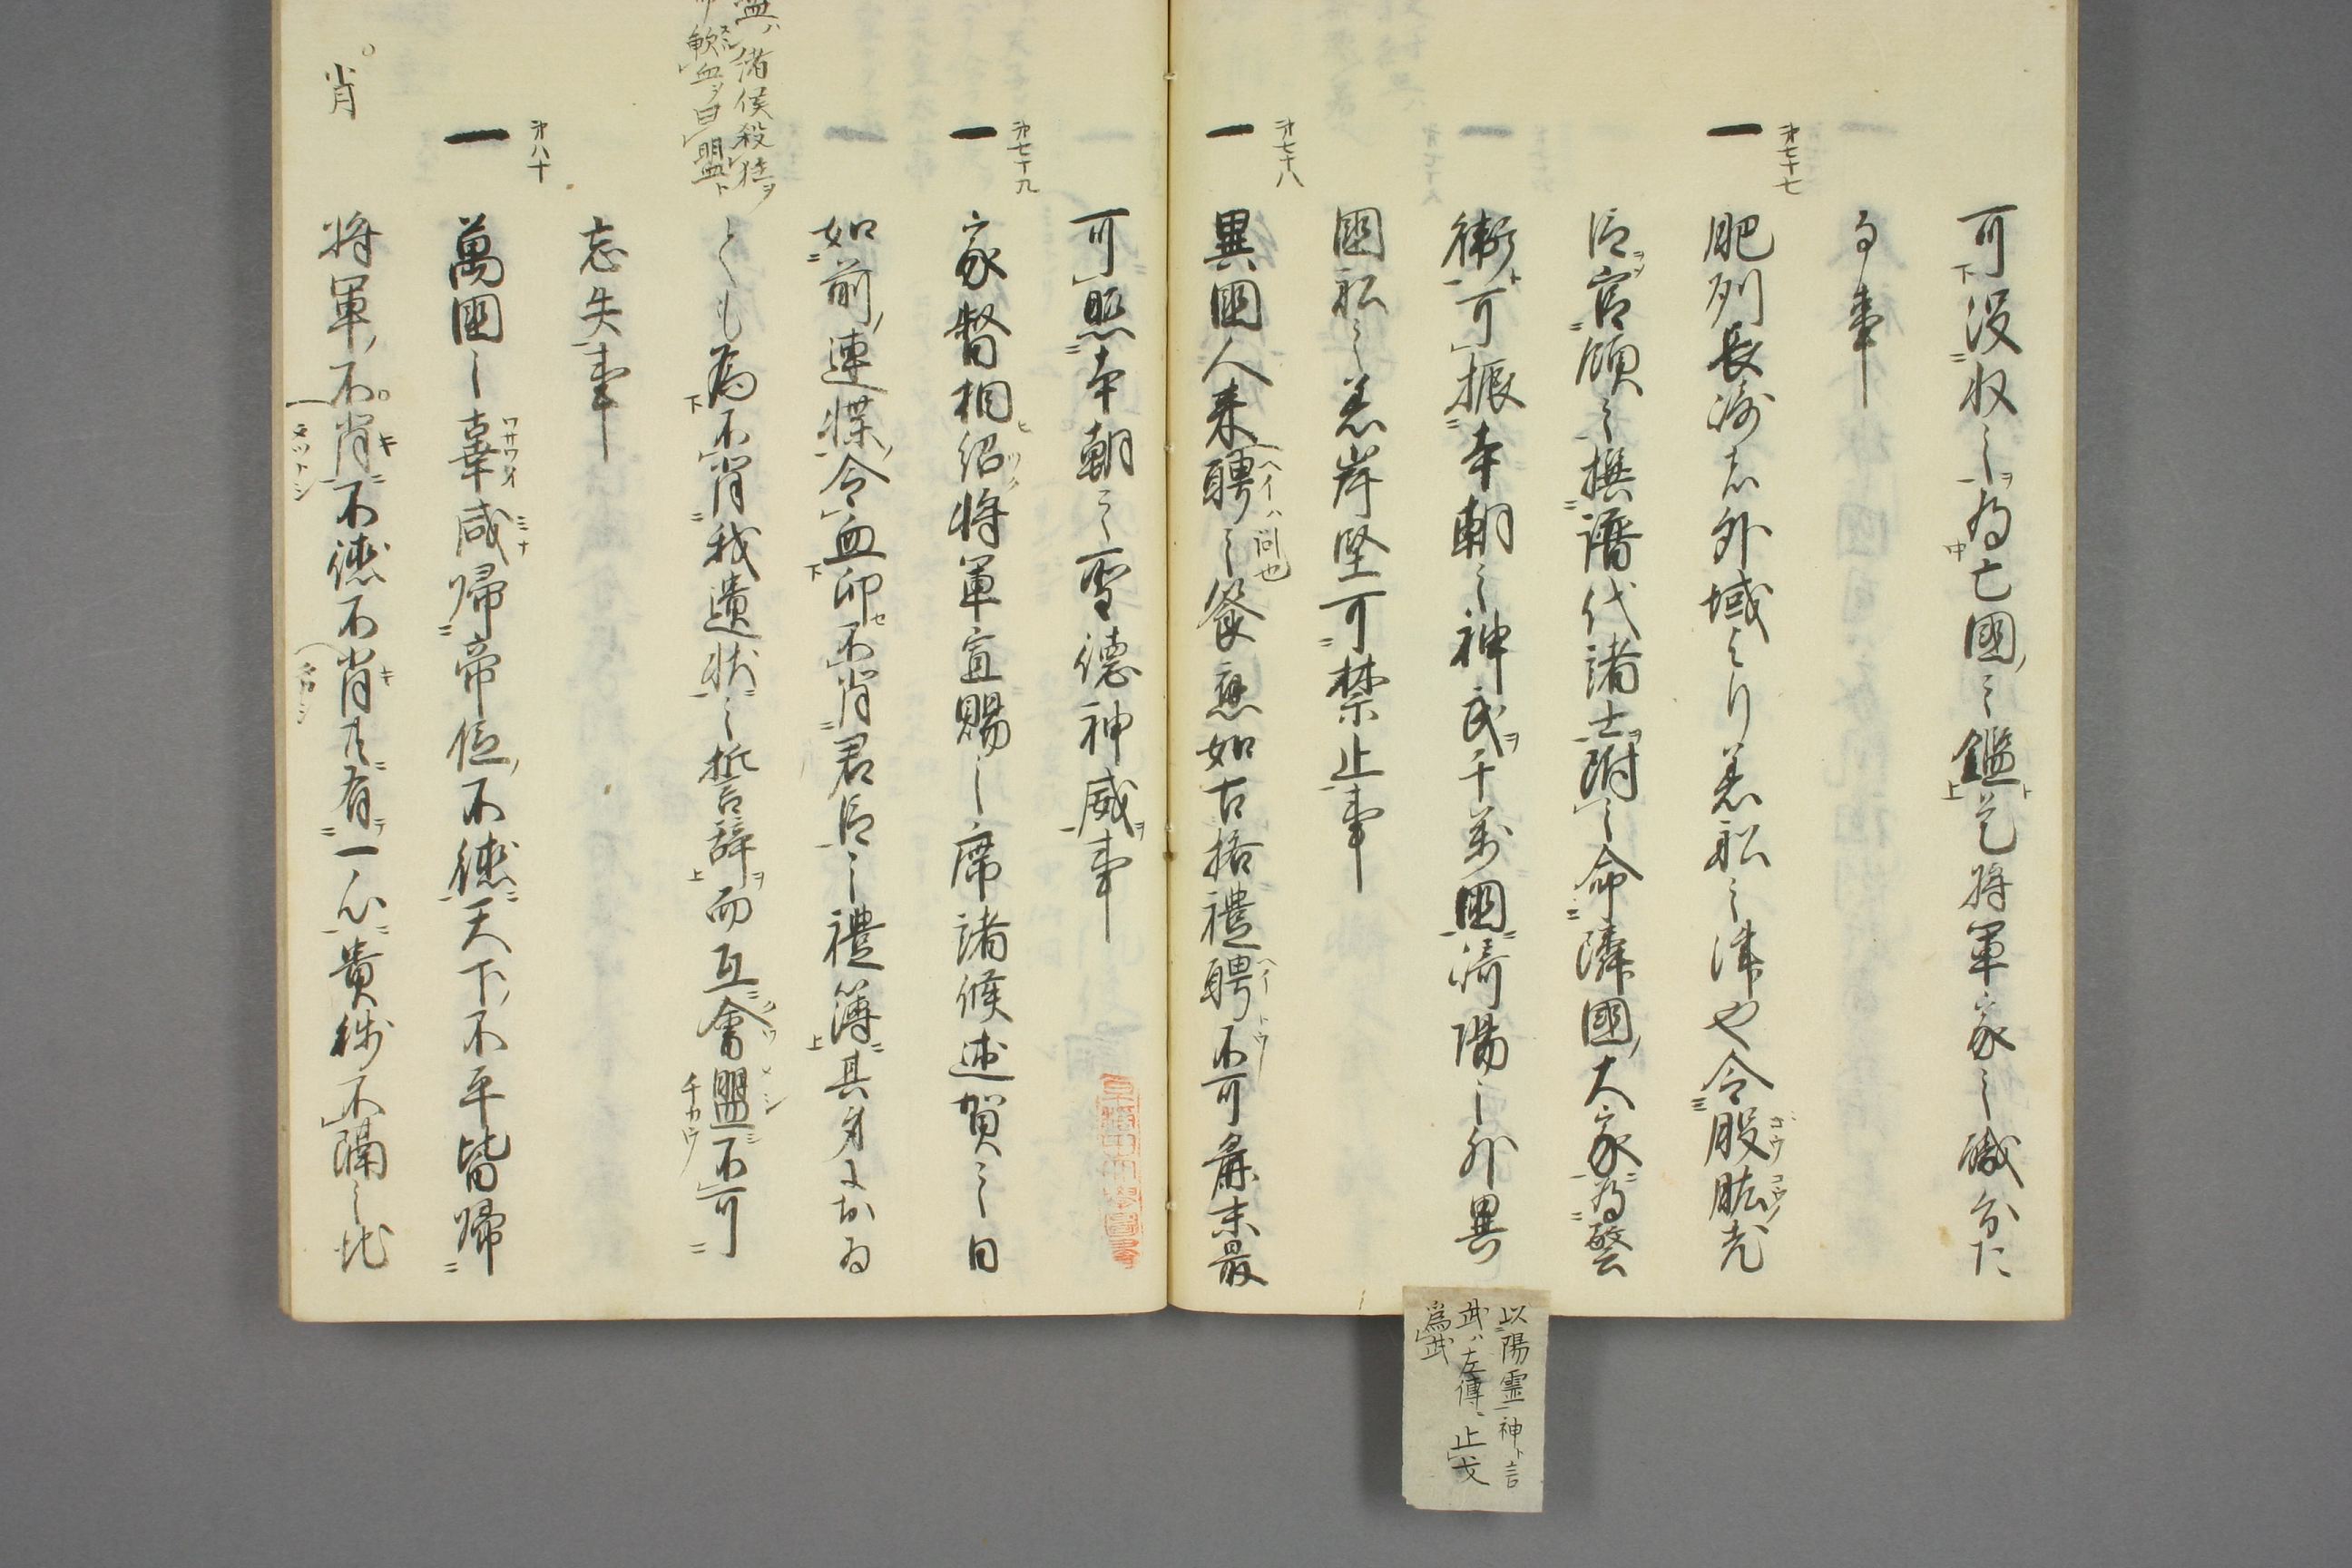 可没収之為亡國之鑑是将軍家之職分た
る事
第七十七
一 肥州長崎者外域より着舩之津也令股肱先
臣官領之撰譜代諸士附之命隣國大家為警
衛可振本朝之神武千萬國崎陽之外異
國舩之着岸堅可禁止事
第七十八
一 異國人来聘之餐應如古格禮聘不可麁末最
ヘイハ問也
可照本朝之聖德神威事
第七十九
一 家督相紹将軍宣賜之席諸候述賀之日
如前連牒令血印不肖君臣之禮簿其身におゐ
とくも為不肖我遺状之誓辞而互會盟不可
忘失事
盟ハ諸侯殺牲ヲ
歃血ヲ曰盟ト
第八十
一 萬國之辜咸帰帝位不德天下不平皆帰
将軍不肖不德不肖共有一心貴賎不隔之地
肖
以陽霊神ト言
武ハ左傳ニ止戈
爲武